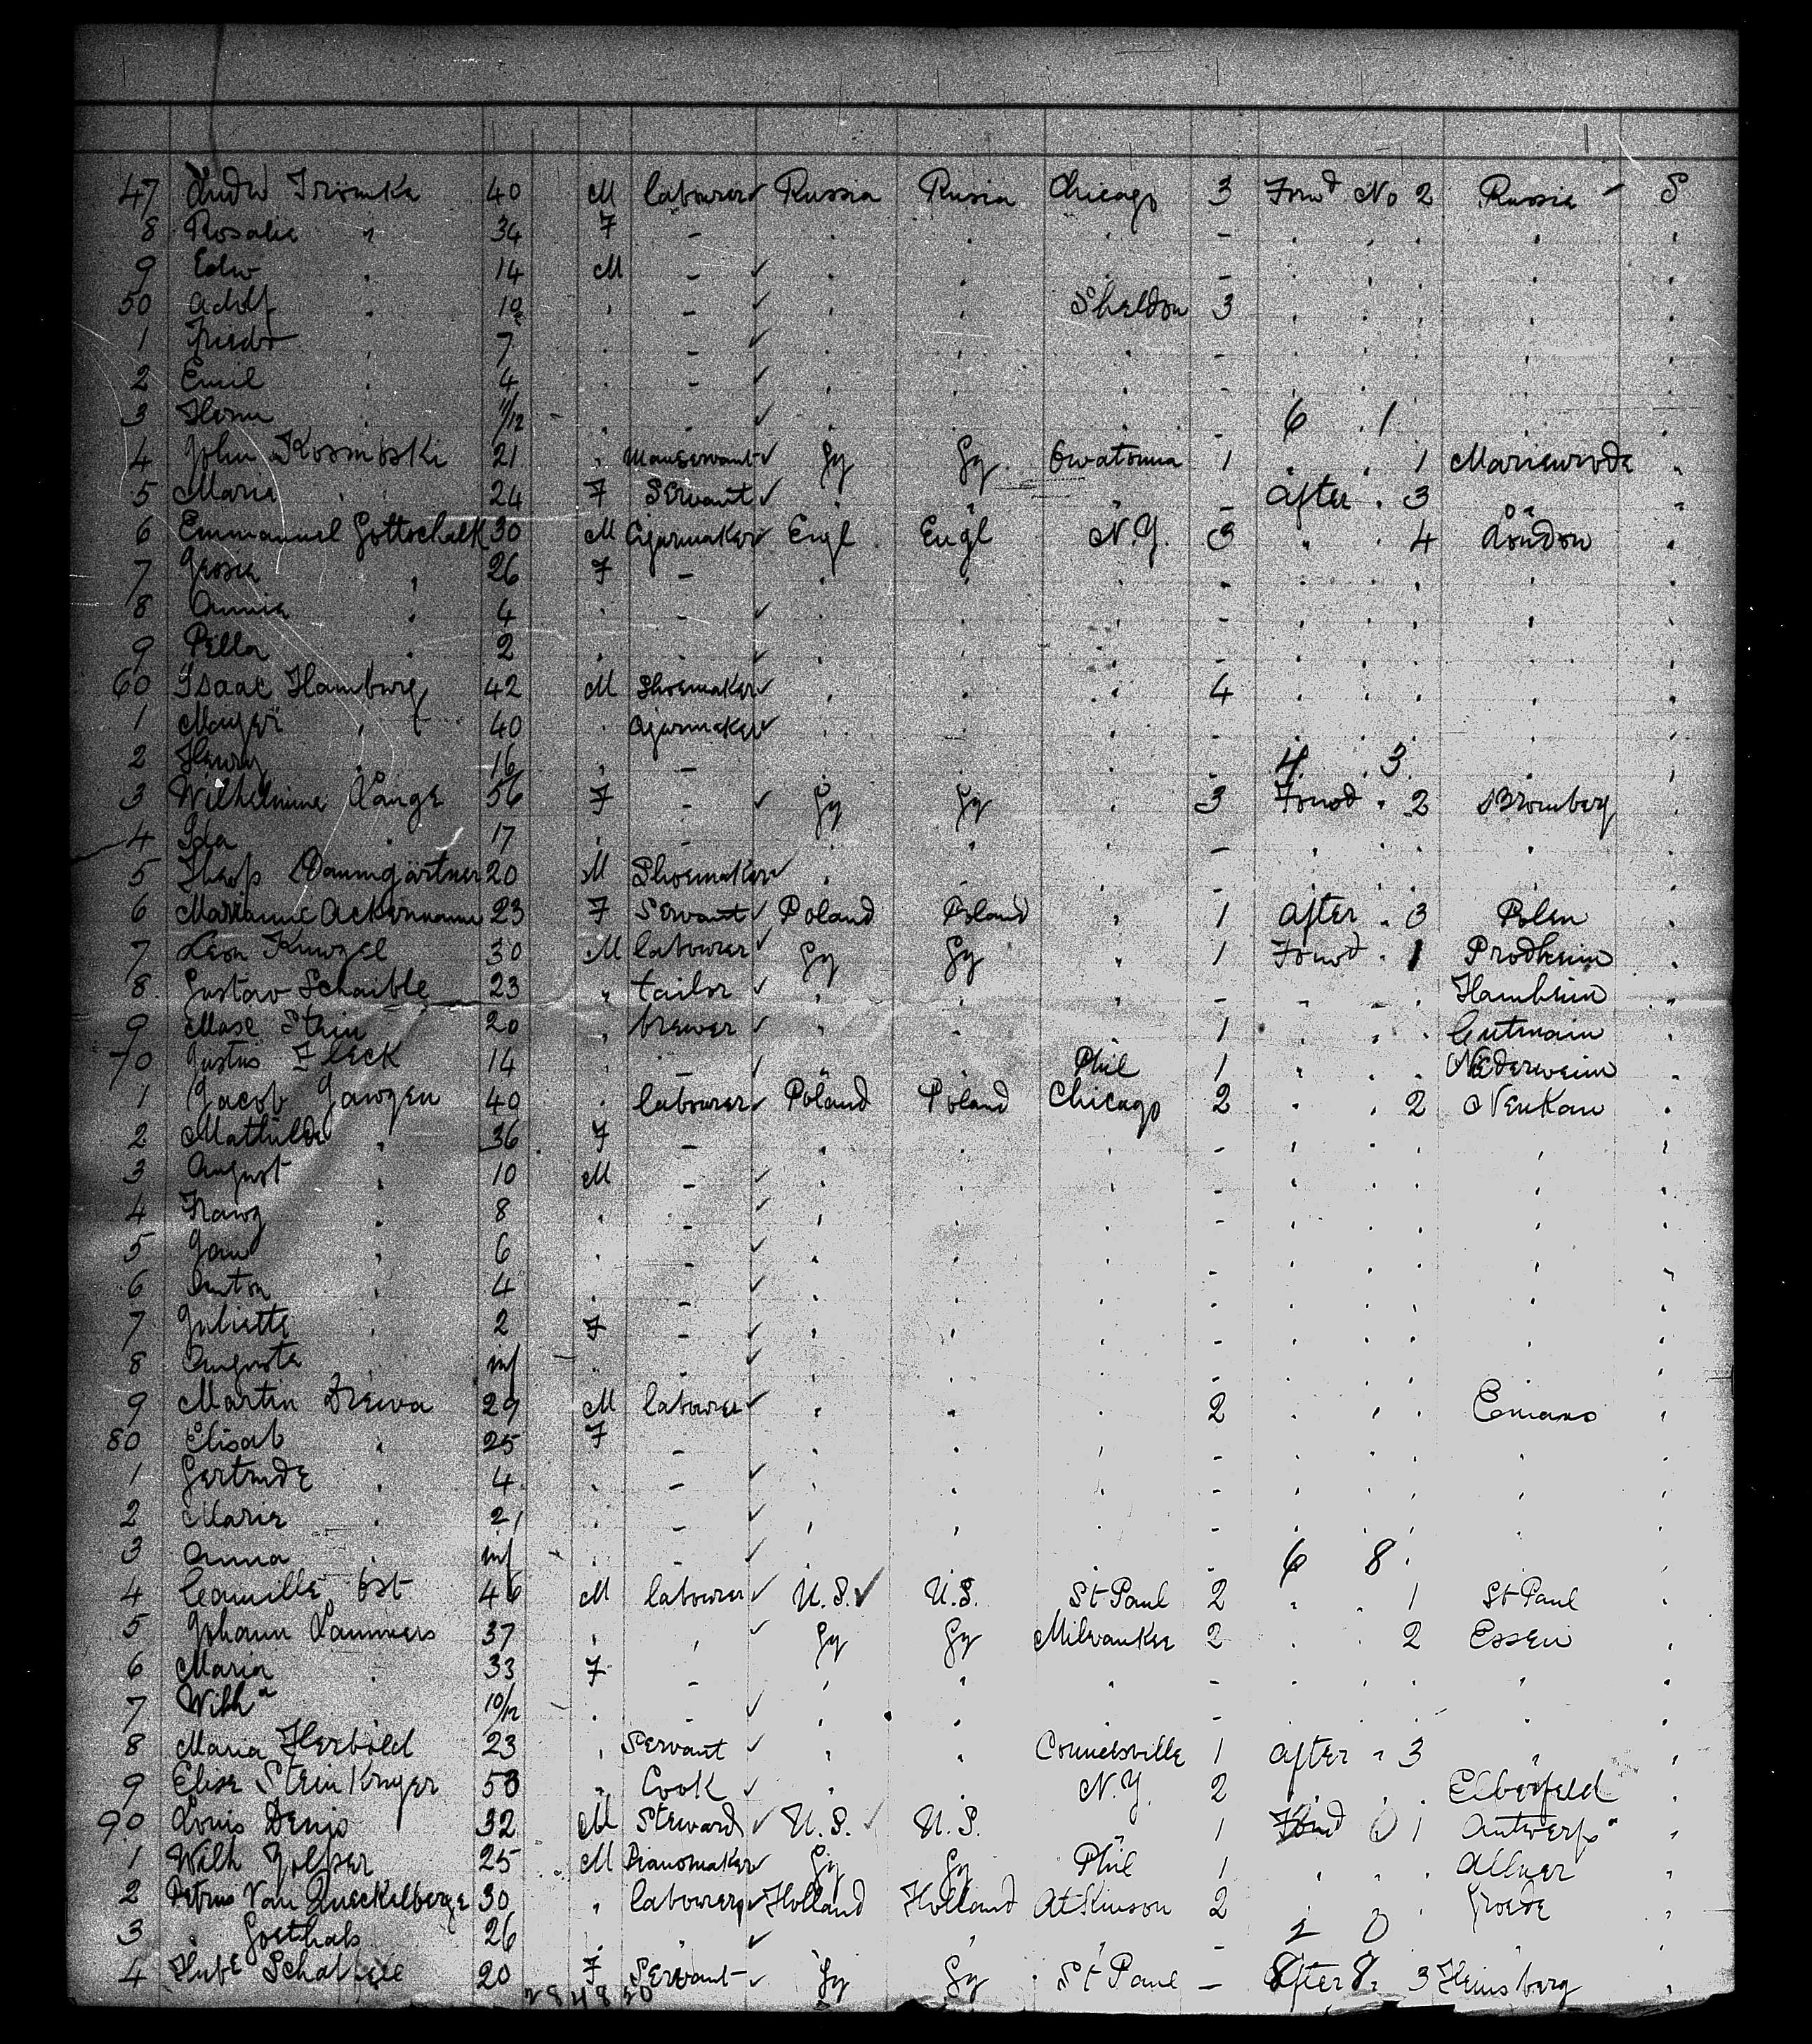 47 Ludw Tromka 40 M labourer ✓ Russia Rusia Chicago 3 Forwd No 2 Russia - S
8 Rosalie " 34 F - . . . - . . . . .
9 Edw . 14 M - ✓ . . . - . . . . .
50 Adolf . 10 . - ✓ . . Sheldon 3 . . . . .
1 Friedr . 7 . - ✓ . . . - . . . . .
2 Emil . 4 . - ✓ . . . - . . . . .
3 Herm . 11/12 - . . ✓ . . . - 6 1 . .
4 John Kosmoski 21 . Manservant ✓ Gy Gy Owatonna 1 . . 1 Marienrode .
5 Maria . 24 F Servant ✓ . . . - After . 3 .
6 Emmanuel Gottschalk 30 M Cigarmaker ✓ Engl Engl N.Y. 3 " . 4 London .
7 26 F - . . . - . . . . .
8 Annie . 4 . - ✓ . . . - . . . . .
9 Pella . 2 . . ✓ . . . - . . . . .
60 Isaac Hamburg 42 M Shoemaker ✓ . . . 4 . . . . .
1 Mayer . 40 . Cigarmaker ✓ . . . - . . . . .
2 Henry . 16 . - . . . - 4 3 . .
3 Wilhelmine Lange 56 F - ✓ Gy Gy . 3 Forwd . 2 Bromberg
4 Ida . 17 . - . . . - . . . . .
5 Baumgärtner 20 M Shoemaker ✓ . . . - . . . . .
6 Marianne Ackermann 23 F Servant ✓ Poland Poland . 1 After . 3 Polen .
7 Leon Kunzel 30 M labourer ✓ Gy Gy . 1 Forwd . 1 Prodheim .
8 Gustav Schaible 23 . tailor ✓ . . . - - . . Hamheim .
9 Stein 20 . brewer ✓ . . 1 . . . .
70 Justus Fleck 14 . - ✓ . . Phil 1 . . . Niederweim .
1 Jacob Gawzen 40 . labourer ✓ Poland Poland Chicago 2 . . 2 Neukau .
2 Mathilde . 36 F - . . . - . . . . .
3 August . 10 M - ✓ . . . - . . . . .
4 Franz . 8 . - ✓ . . . - . . . . .
5 Jan . 6 . - ✓ . . . - . . . . .
6 Anton . 4 . - ✓ . . . - . . . . .
7 Juliette . 2 F - ✓ . . . - . . . . .
8 Augusta . inf - . - ✓ . . . - . . . . .
9 Martin Drewa 29 M labourer ✓ . . . 2 . . . .
80 Elisab . 25 F - . . . - . . . . .
1 Gertrude . 4 . - ✓ . . . - . . . . .
2 Marie . 2 . - ✓ . . . - . . . . .
3 Anna . inf - . - ✓ . . . - 6 8 . .
4 Camille Ost 46 M labourer ✓ U.S. ✓ U.S. St Paul 2 . . 1 St Paul .
5 Johann Lammers 37 . . ✓ Gy Gy Milwaukee 2 . . 2 Essen .
6 Maria . 33 F - . . . - . . . . .
7 Wilha . 10/12 - . - ✓ . . . - . . . . .
8 Maria Herbold 23 . Servant ✓ . . Connelsville 1 After . 3 . .
9 Elise Steinkruger 53 . Cook ✓ . . N.Y. 2 . . . Elberfeld .
90 Louis Denis 32 M Steward ✓ U.S. ✓ U.S. 1 Forwd 0 1 Antwerp .
1 Wilh 25 M Pianomaker ✓ Gy Gy Phil 1 . . . Allner .
2 Petrus Van Queckelberge 30 . labourer ✓ Holland Holland Atkinson 2 . Groede .
3 . Goethals 26 . . ✓ . . . - 2 0 . .
4 Hube 20 F Servant ✓ Gy Gy St Paul - After 8. 3 Heinsberg .
28 48 20